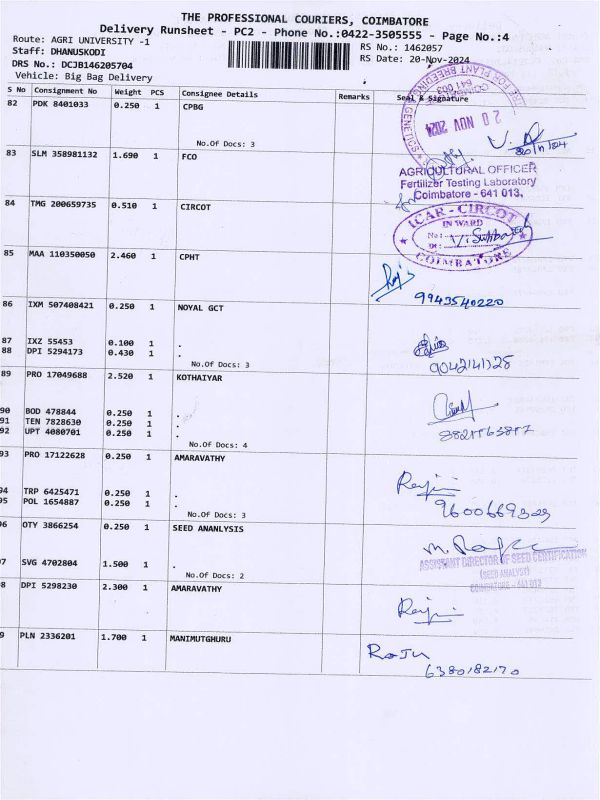 THE PROFESSIONAL COURIERS, COIMBATORE
Delivery Runsheet - PC2 - Phone No.:0422-3505555 - Page No.:4
Route: AGRI UNIVERSITY -1 RS No.: 1462057
Staff: DHANUSKODI RS Date: 20-Nov-2024
DRS No.: DCJB146205704
Vehicle: Big Bag Delivery
S No Consignment No Weight PCS Consignee Details Remarks Seal & Signature
82 PDK 8401033 0.250 1 CPBG
20 NOV 2024
No.Of Docs: 3
83 SLM 358981132 1.690 1 FCO
AGRICULTURAL OFFICER
Fertilizer Testing Laboratory
Coimbatore - 641 013.
84 TMG 200659735 0.510 1 CIRCOT
ICAR - CIRCOT
IN WARD
No:
COIMBATORE
85 MAA 110350050 2.460 1 CPHT
9943540220
86 IXM 507408421 0.250 1 NOYAL GCT
87 IXZ 55453 0.100 1 .
88 DPI 5294173 0.430 1 .
No.Of Docs: 3
9042141128
89 PRO 17049688 2.520 1 KOTHAIYAR
90 BOD 478844 0.250 1 .
91 TEN 7828630 0.250 1 .
92 UPT 4080701 0.250 1 .
No.Of Docs: 4
93 PRO 17122628 0.250 1 AMARAVATHY
94 TRP 6425471 0.250 1 .
95 POL 1654887 0.250 1 .
No.Of Docs: 3
96 OTY 3866254 0.250 1 SEED ANANLYSIS
ASSISTANT DIRECTOR OF SEED CERTIFICATION
(SEED ANALYST)
COIMBATORE - 641 013
97 SVG 4702804 1.500 1 .
No.Of Docs: 2
98 DPI 5298230 2.300 1 AMARAVATHY
99 PLN 2336201 1.700 1 MANIMUTGHURU
Raju
6380182170